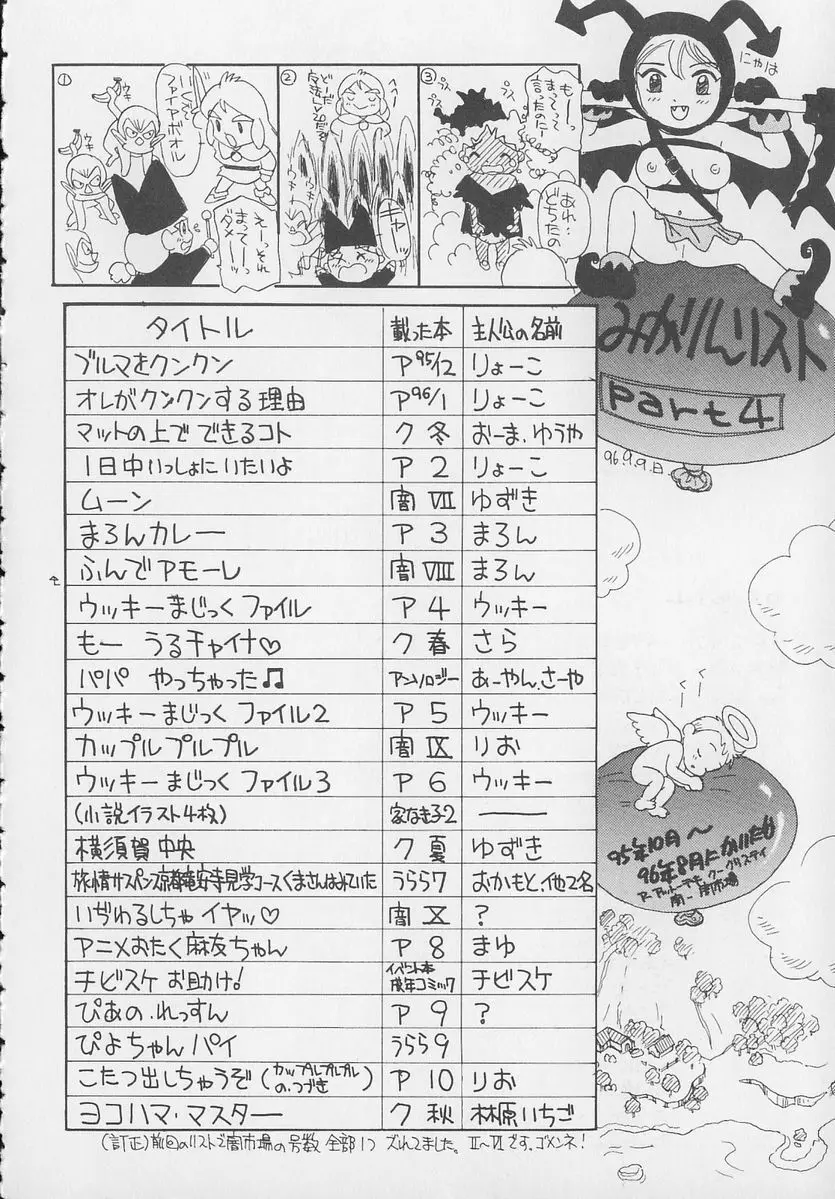 にゃは
①
いくぞー
ファイアボオル
ウキ
ウキ
えーっそれ
まってーっ
ダメーッ
②
どーだ
へへー
キャッ
③
もーっ
まってって
言ったのにー
あれ…
どちたの
みかりんリスト
part4
96.9.9.日
タイトル 載った本 主人公の名前
ブルマをクンクン ア95/12 りょーこ
オレがクンクンする理由 ア96/1 りょーこ
マットの上で できるコト ク 冬 おーま、ゆうや
1日中いっしょにいたいよ ア 2 りょーこ
ムーン 闇 VII ゆずき
まろんカレー ア 3 まろん
ふんでアモーレ 闇 VIII まろん
ウッキーまじっく ファイル ア 4 ウッキー
もー うるチャイナ♡ ク 春 さら
パパ やっちゃった♫ アンソロジー あーやん、さーや
ウッキーまじっく ファイル2 ア 5 ウッキー
カップルプルプル 闇 IX りお
ウッキーまじっく ファイル3 ア 6 ウッキー
(小説イラスト4枚) 家なき子2 ――
横須賀中央 ク 夏 ゆずき
旅情サスペンス京都竜安寺見学コースくまさんはみていた うらら7 おかもと、他2名
いぢわるしちゃ イヤッ♡ 闇 X ?
アニメおたく麻友ちゃん ア 8 まゆ
チビスケ お助け! イベント本 成年コミック チビスケ
ぴあの・れっすん ア 9 ?
ぴよちゃんパイ うらら9
こたつ出しちゃうぞ(カップルプルプルの・つづき) ア 10 りお
ヨコハマ・マスター ク 秋 林原いちご
95年10月〜
96年8月にかいたもの
(訂正)前回のリストで闇市場の号数 全部1つ ズレてました。II〜VIです、ゴメンネ!